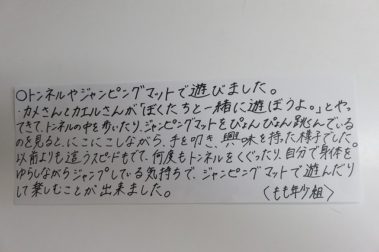 ○トンネルやジャンピングマットで遊びました。
・カメさんとカエルさんが「ぼくたちと一緒に遊ぼうよ。」とやっ
てきて、トンネルの中を歩いたり、ジャンピングマットをぴょんぴょん跳んでいる
のを見ると、にこにこしながら、手を叩き、興味を持った様子でした。
以前よりも這うスピードもでて、何度もトンネルをくぐったり、自分で身体を
ゆらしながらジャンプしている気持ちで、ジャンピングマットで遊んだり
して楽しむことが出来ました。
(もも年少組)